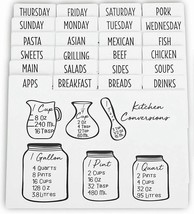 THURSDAY FRIDAY SATURDAY PORK
SUNDAY MONDAY TUESDAY WEDNESDAY
PASTA ASIAN MEXICAN FISH
SWEETS GRILLING BEEF CHICKEN
MAIN SALADS SIDES SOUPS
APPS BREAKFAST BREADS DRINKS
Kitchen
Conversions
1 Cup
8 OZ
240 ML
16 TBSP
1 Gallon
4 Quarts
8 Pints
16 Cups
128 OZ
3.8 Liters
1 Pint
2 Cups
16 OZ
32 TBSP
480 ML
1 Quart
2 Pints
4 Cups
32 OZ
.95 Liters